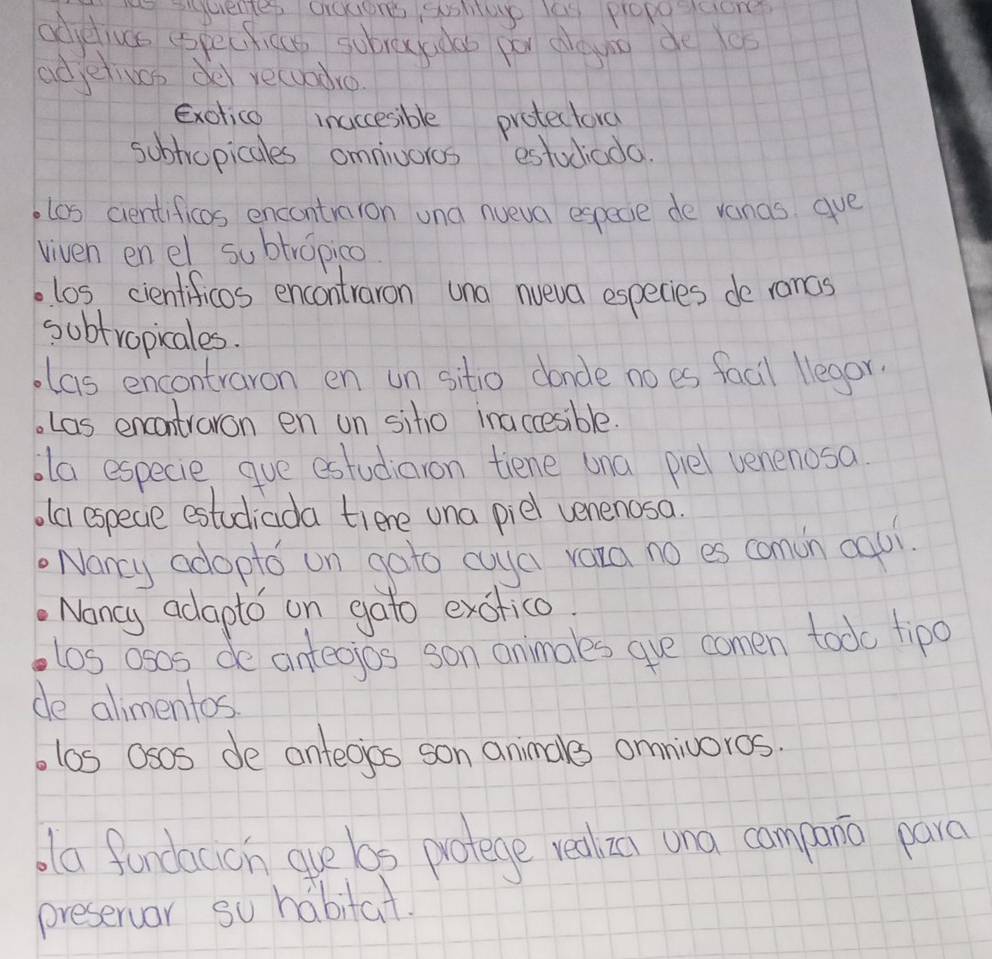 las siguientes oraciones, sustituye las proposiciones
adjetivas especificas subrayadas por alguno de los
adjetivos del recuadro.
Exotico inaccesible protectora
subtropicales omnivoros estudiada.
•los cientificos encontraron una nueva especie de ranas que
viven en el subtrópico.
•los cientificos encontraron una nueva especies de ranas
subtropicales.
•las encontraron en un sitio donde no es facil llegar.
•Las encontraron en un sitio inaccesible.
•la especie que estudiaron tiene una piel venenosa.
•la especie estudiada tiene una piel venenosa.
•Nancy adoptó un gato cuya raza no es común aquí.
•Nancy adaptó un gato exótico.
•los osos de anteojos son animales que comen todo tipo
de alimentos.
•los osos de anteojos son animales omnivoros.
•la fundación que los protege realiza una campaña para
preservar su hábitat.